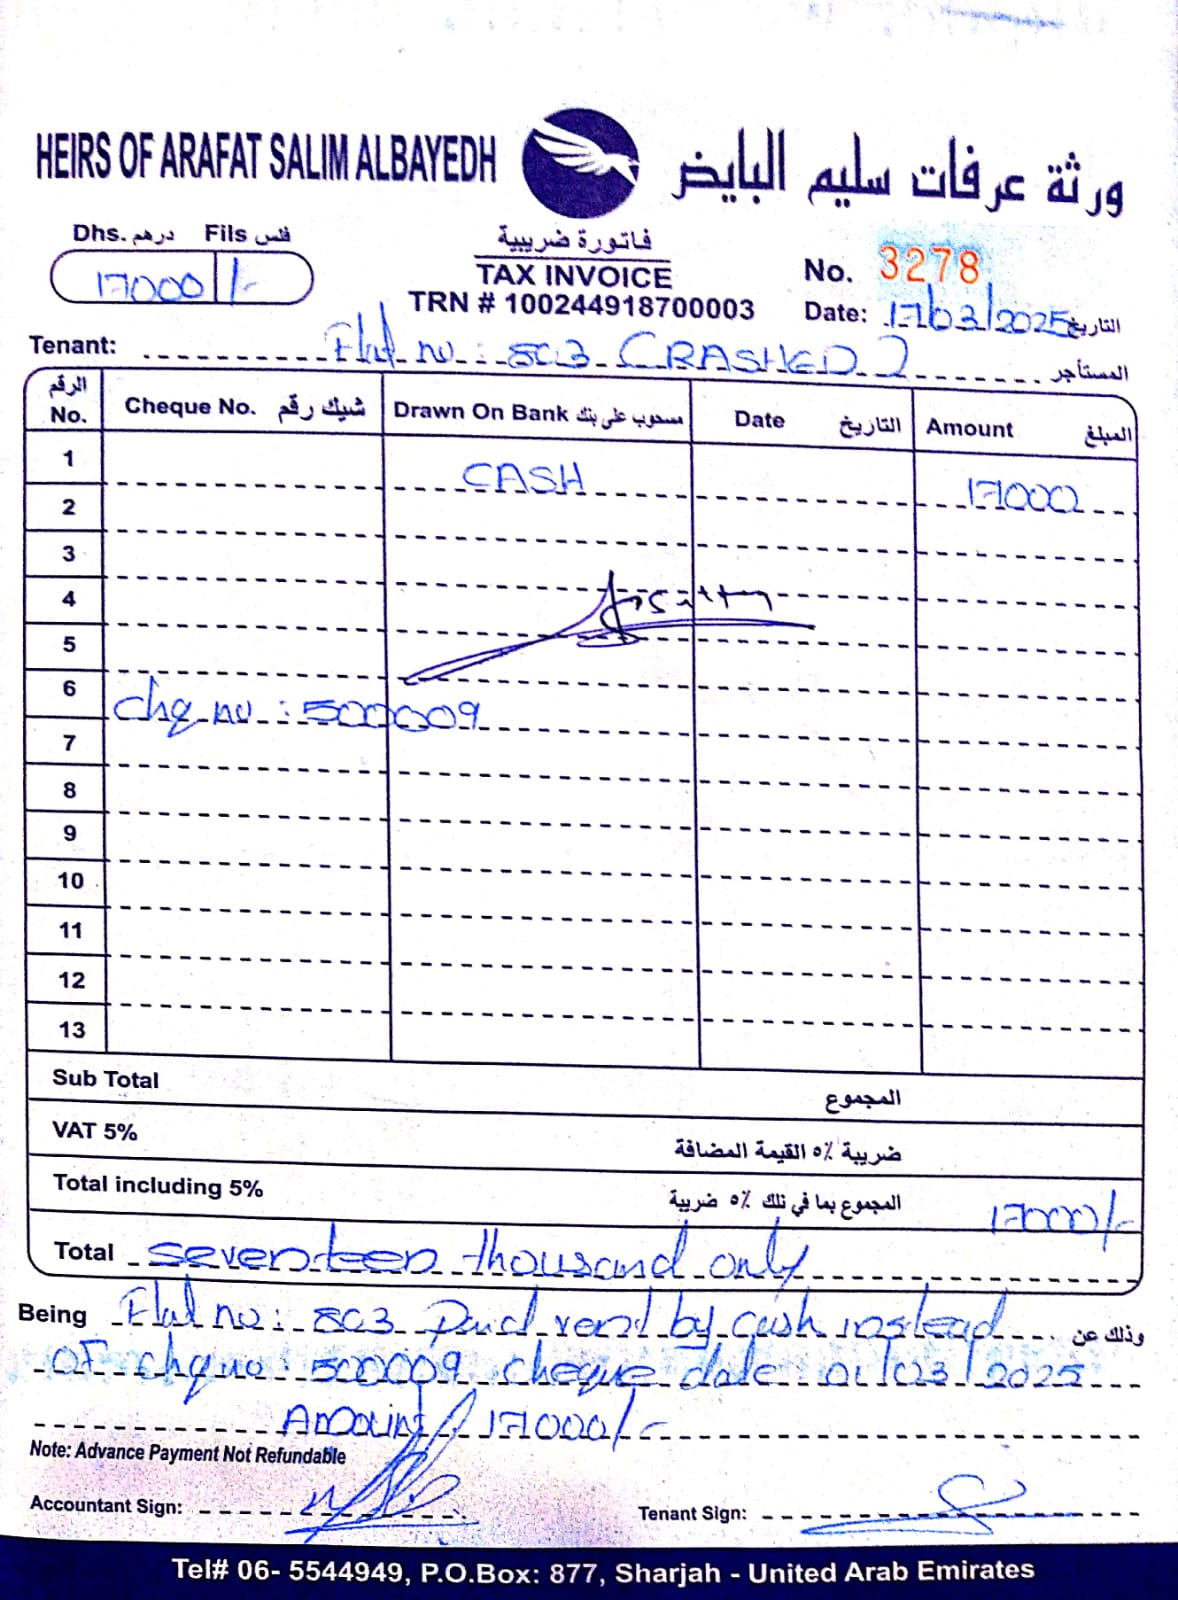 HEIRS OF ARAFAT SALIM ALBAYEDH ورثة عرفات سليم البايض
Dhs. درهم Fils فلس
17000 /-
فاتورة ضريبية
TAX INVOICE
TRN # 100244918700003
No. 3278
Date: 17/03/2025 التاريخ
Tenant: Flat no: 803 (RASHED) المستأجر
الرقم No. Cheque No. شيك رقم Drawn On Bank مسحوب على بنك Date التاريخ Amount المبلغ
1 CASH 17000
2
3
4
5
6 chq no: 500009
7
8
9
10
11
12
13
Sub Total المجموع
VAT 5% ضريبة ٥٪ القيمة المضافة
Total including 5% المجموع بما في ذلك ٥٪ ضريبة 17000/-
Total seventeen thousand only
Being Flat no: 803 Paid rent by cash instead وذلك عن
OF chq no: 500009 cheque date 01/03/2025
Amount 17000/-
Note: Advance Payment Not Refundable
Accountant Sign:
Tenant Sign:
Tel# 06- 5544949, P.O.Box: 877, Sharjah - United Arab Emirates